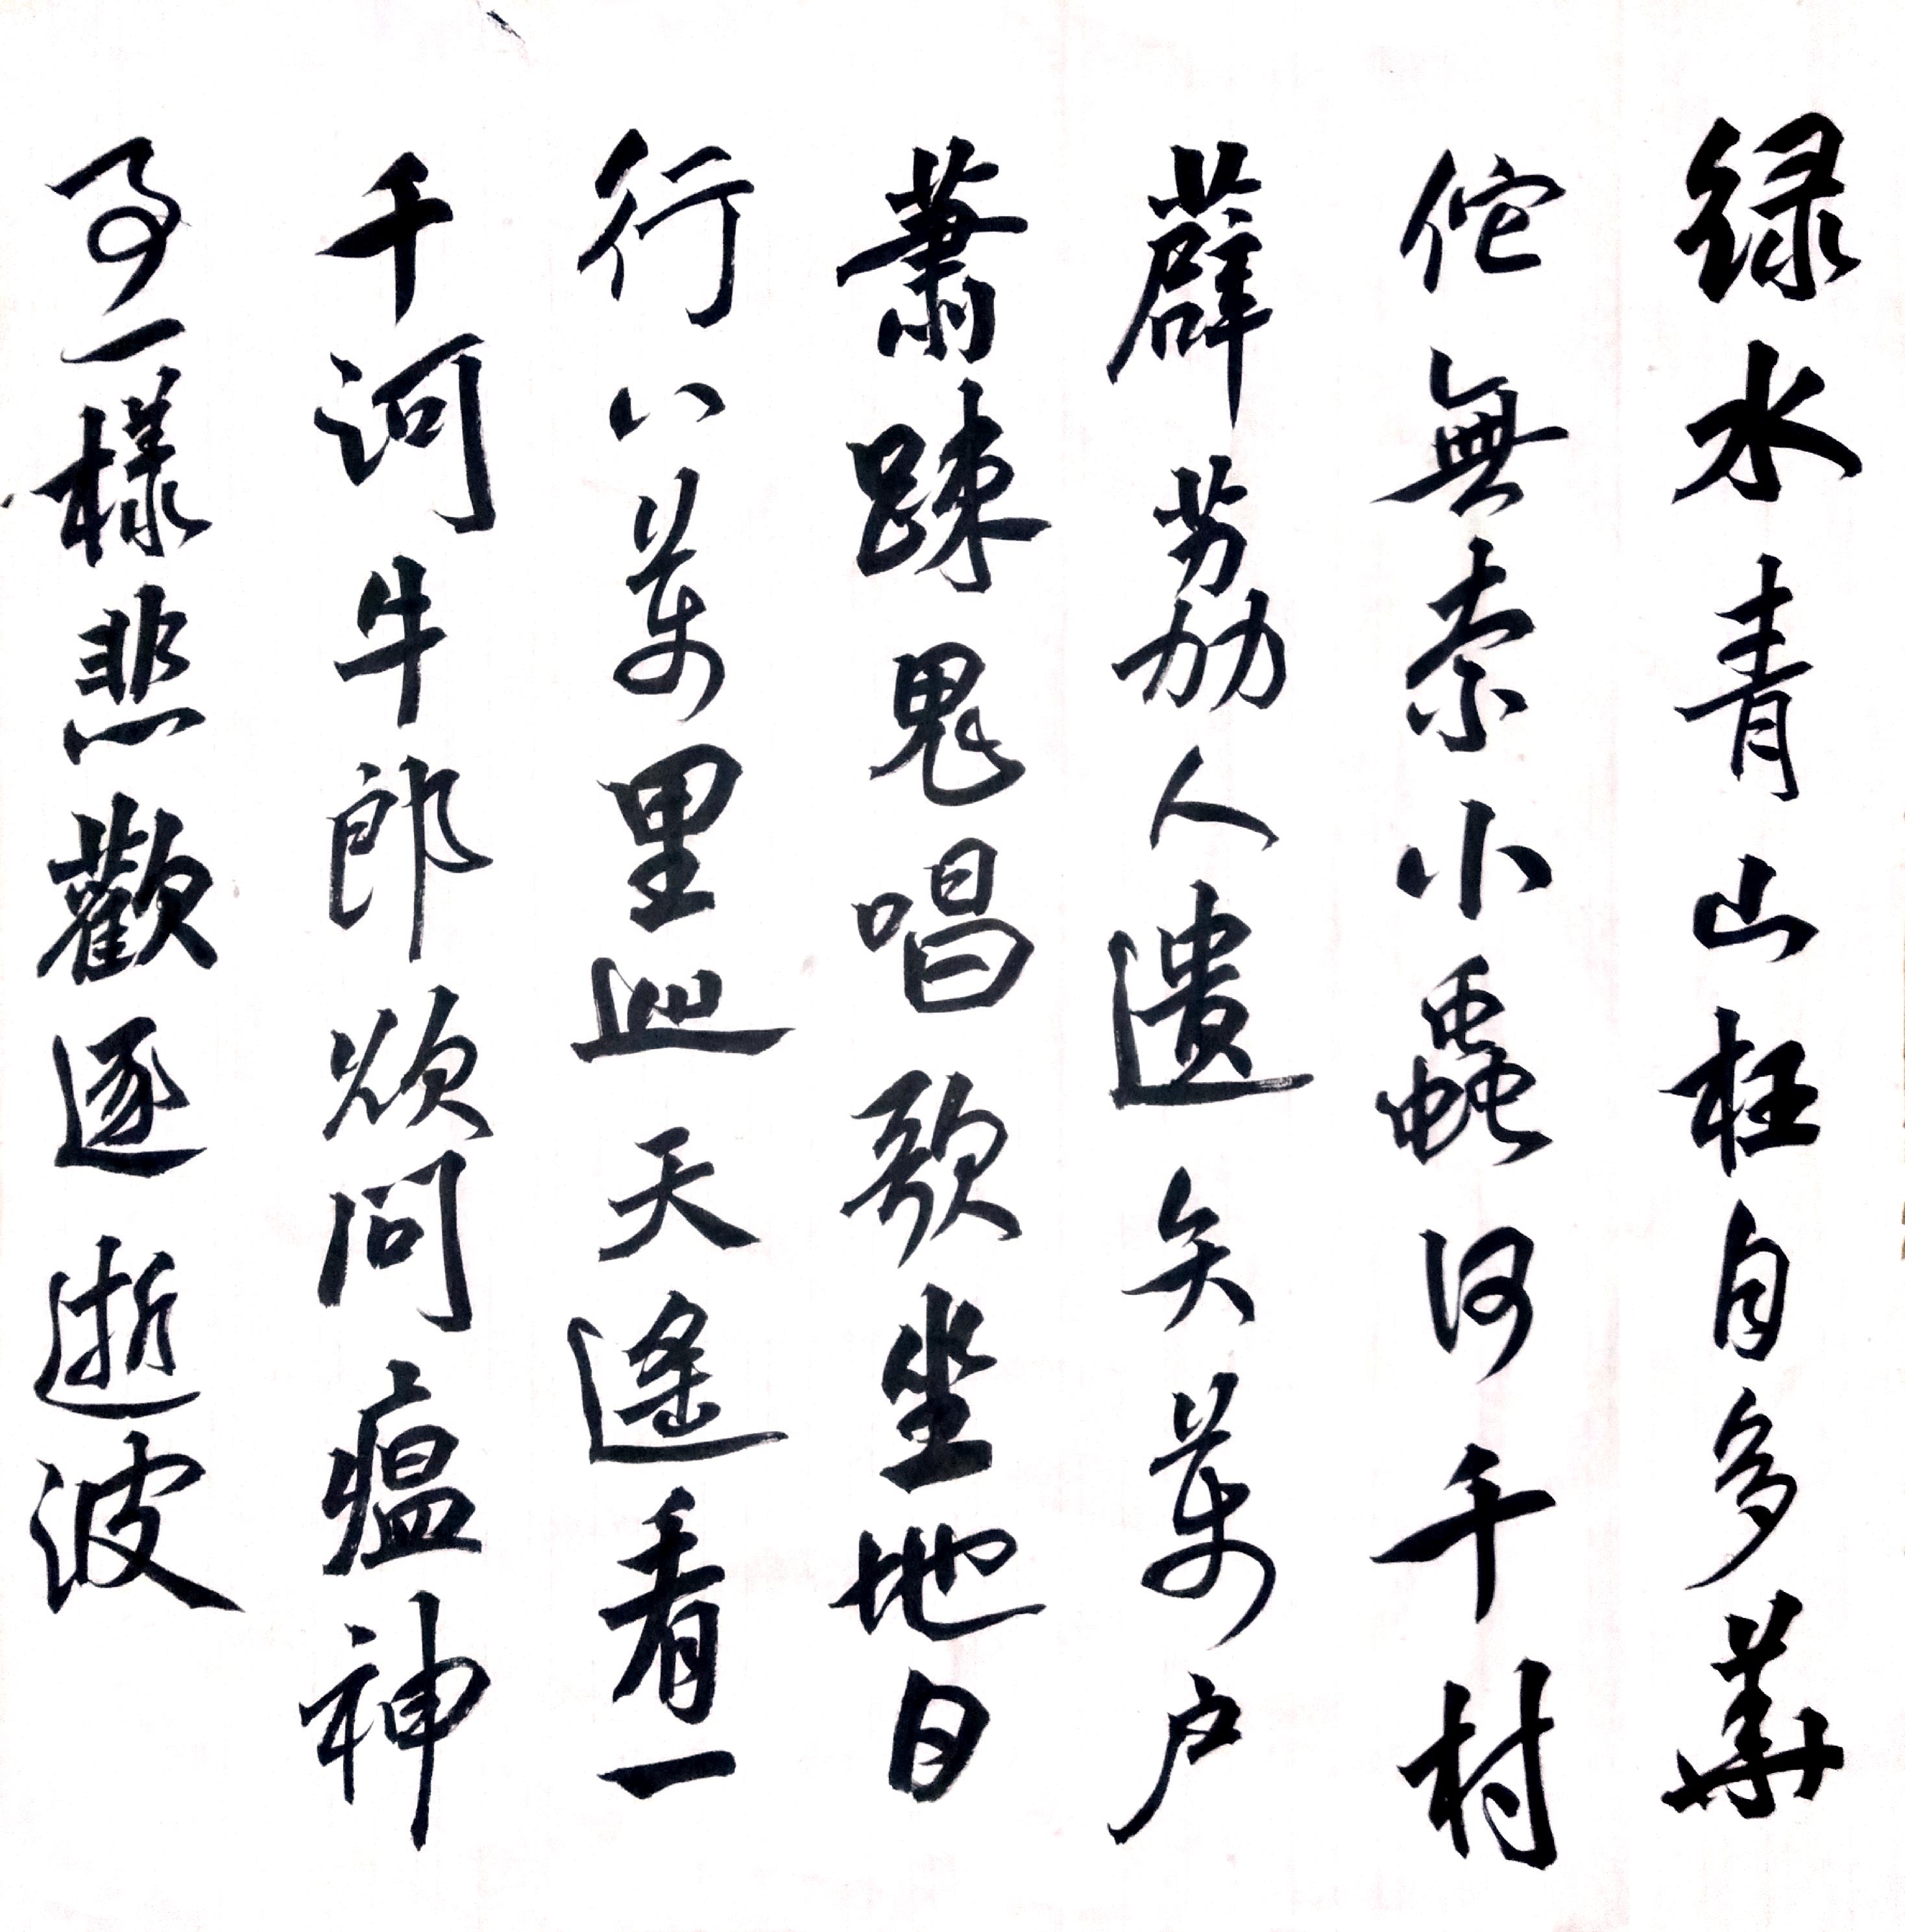 绿水青山枉自多華
佗無奈小蟲何千村
薜茘人遺矢萬户
蕭踈鬼唱歌坐地日
行八萬里巡天遥看一
千河牛郎欲問瘟神
事一樣悲歡逐逝波